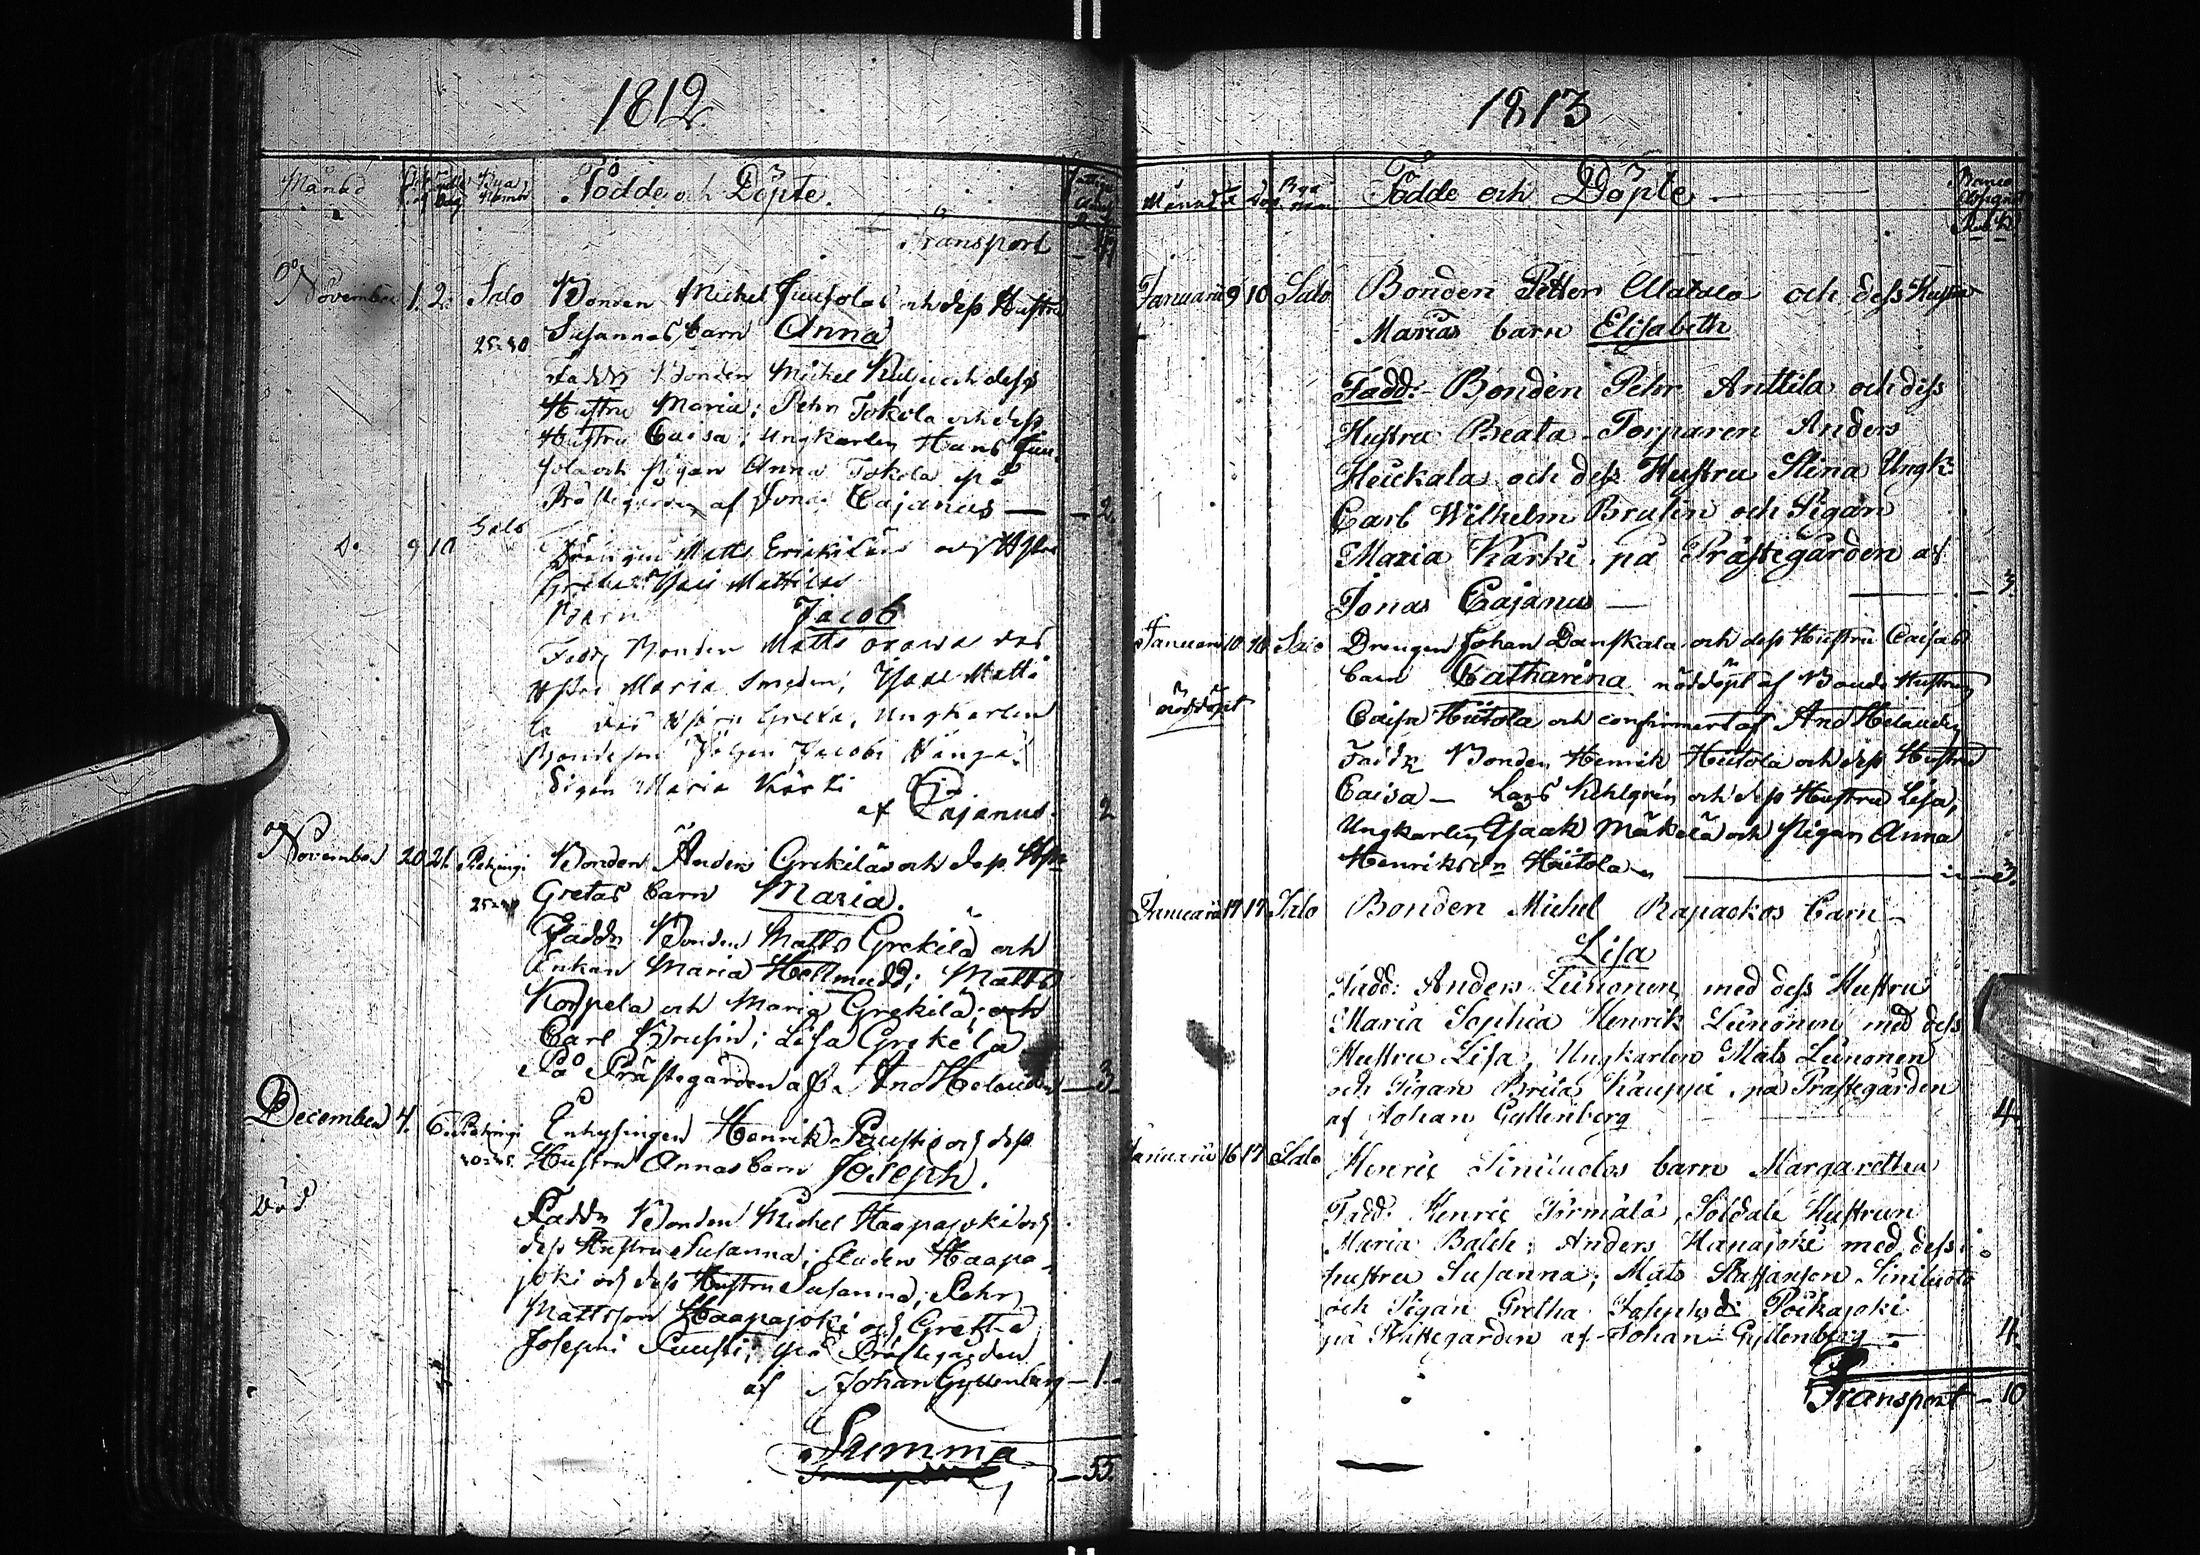 1812
Månad Bya Födde och Döpte.
Transport
November 1. 2. Salo Bonden Michel Juusolas och dess Hustru
25-30 Susannas barn Anna
Bonden Michel och dess
Hustru Maria; Pehr Tokola och dess
Hustru Caisa; Ungkarlen Hans Juu-
sola och Pigan Anna Tokola på
Prästegården af Jonas Cajanus — 2
Do 9 10 Salo Drengen Matts Erickiläs och Hstru
Gretas
Barn Jacob
Fadd. Bonden Matts
Hstru Maria Smeden, Isaac Matti
la Hstru Greta, Ungkarlen
Bondeson Jacobs
Pigan Maria Kärki
af Cajanus. 2
November 20 21. Bonden Anders Grekiläs och dess Hstru
Gretas barn Maria.
Faddr Bonden Matts Grekilä och
Enkan Maria Hellmedd; Matts
Korpela och Maria Grekilä; och
Carl Brusin; Lisa Grekilä
På Prästegården af And Helander — 3
December 4. 6. Inhysingen Henrik Puustis och dess
Hustru Annas barn Joseph.
Faddr Bonden Michel Haapajoki och
dess Hustru Susanna; Anders Haapa-
joki och dess Hustru Susanna; Pehr
Mattsson Haapajoki och Gretha
Josephi Puusti; på Prästegården
af Johan Gyllenberg — 1 —
Summa — 55.
1813
Månad Dop Bya Födde och Döpte —
Januarii 9 10 Salo Bonden Petter Alatalo och dess Hustru
Marias barn Elisabeth
Fadd: Bonden Pehr Anttila och dess
Hustru Beata - Torparen Anders
Heickala och dess Hustru Stina Ungk.
Carl Wilhelm Brusin och Pigan
Maria Kärki. på Prästegården af
Jonas Cajanus — 3
Januarii 10 10 Salo Drengen Johan Danskala och dess Hustru Caisas
barn Catharina nöddöpt af Bonde Hustrun
nöddöpt
Caisa Hiitola och confirmerat af And Helander
Faddr Bonden Henrik Hiitola och dess Hustru
Caisa — Lars Kihlgrén och dess Hustru Lisa,
Ungkarlen Isaak Mäkelä och Pigan Anna
Henriksdn Hiitola — 3.
Januarii 17 17 Salo Bonden Michel Rapackos barn —
Lisa
Fadd: Anders Leinonen med dess Hustru
Maria Sophia Henrik Leinonen med dess
Hustru Lisa, Ungkarlen Mats Leinonen
och Pigan Brita Kauppi, på Prästegården
af Johan Gyllenberg 4.
Januarii 16 17 Salo Henric Siniluotos barn Margaretha
Fadd: Henric Pirmälä, Soldate Hustrun
Maria Balck; Anders Hanajoki med dess
hustru Susanna; Mats Staffanson Siniluoto
och Pigan Gretha Josephsdr
på Prästegården af Johan Gyllenberg — 4.
Transport — 10